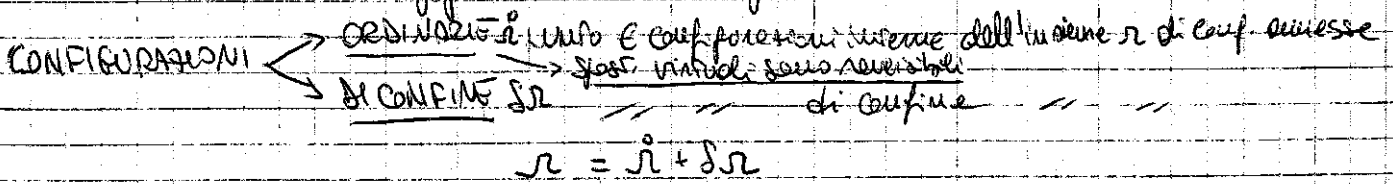 CONFIGURAZIONI
ORDINARIE Ω̊ punto ∈ configurazioni interne dell'insieme Ω di conf. ammesse
→ spost. virtuali sono reversibili
DI CONFINE δΩ " " di confine " "
Ω = Ω̊ + δΩ